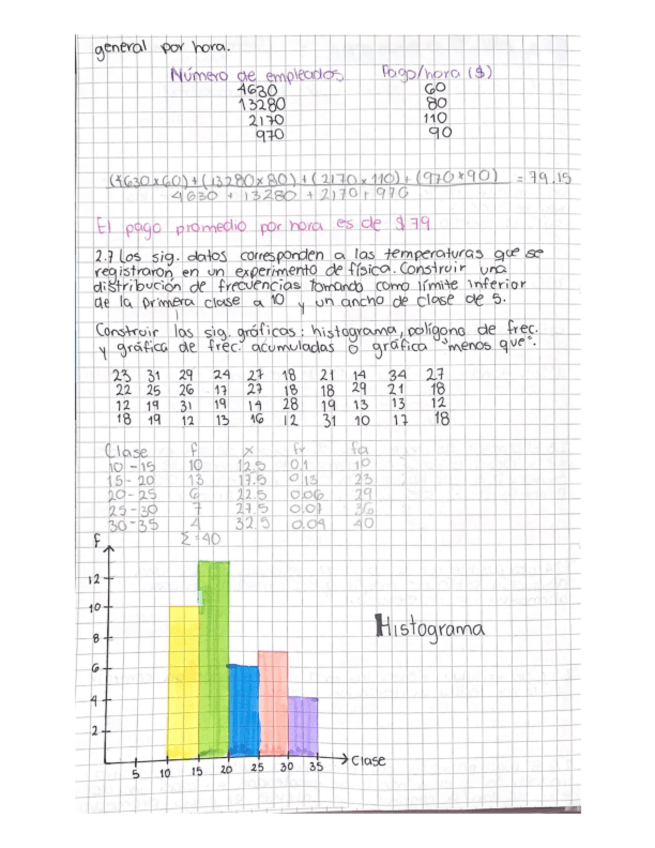 general por hora.
Número de empleados Pago/hora ($)
4630 60
13280 80
2170 110
970 90
(4630x60)+(13280x80)+(2170x110)+(970x90) = 79.15
4630 + 13280 + 2170 + 970
El pago promedio por hora es de $79
2.7 Los sig. datos corresponden a las temperaturas que se
registraron en un experimento de física. Construir una
distribución de frecuencias tomando como límite inferior
de la primera clase a 10 y un ancho de clase de 5.
Construir las sig. gráficas: histograma, polígono de frec.
y gráfica de frec. acumuladas o gráfica "menos que".
23 31 29 24 27 18 21 14 34 27
22 25 26 17 27 18 18 29 21 18
12 19 31 19 14 28 19 13 13 12
18 19 12 13 16 12 31 10 17 18
Clase f x fr fa
10-15 10 12.5 0.1 10
15-20 13 17.5 0.13 23
20-25 6 22.5 0.06 29
25-30 7 27.5 0.07 36
30-35 4 32.5 0.04 40
Σ=40
f
12
10
8
6
4
2
Histograma
5 10 15 20 25 30 35 Clase